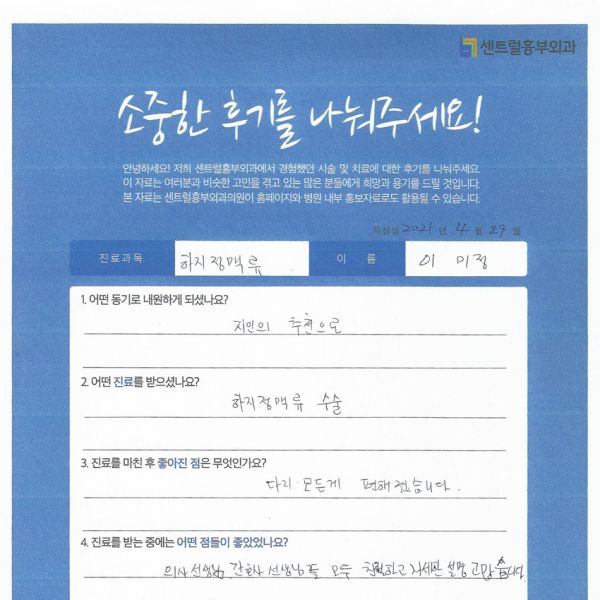 센트럴흉부외과
소중한 후기를 나눠주세요!
안녕하세요! 저희 센트럴흉부외과에서 경험했던 시술 및 치료에 대한 후기를 나눠주세요
이 자료는 여러분과 비슷한 고민을 겪고 있는 많은 분들에게 희망과 용기를 드릴 것입니다.
본 자료는 센트럴흉부외과의원이 홈페이지와 병원 내부 홍보자료로도 활용될 수 있습니다.
작성일 2021 년 4 월 29 일
진료과목 하지정맥류 이 름 이 미정
1. 어떤 동기로 내원하게 되셨나요?
지인의 추천으로
2. 어떤 진료를 받으셨나요?
하지정맥류 수술
3. 진료를 마친 후 좋아진 점은 무엇인가요?
다리 모든게 편해졌습니다.
4. 진료를 받는 중에는 어떤 점들이 좋았었나요?
의사선생님, 간호사 선생님들 모두 친절하고 자세한 설명 고맙습니다